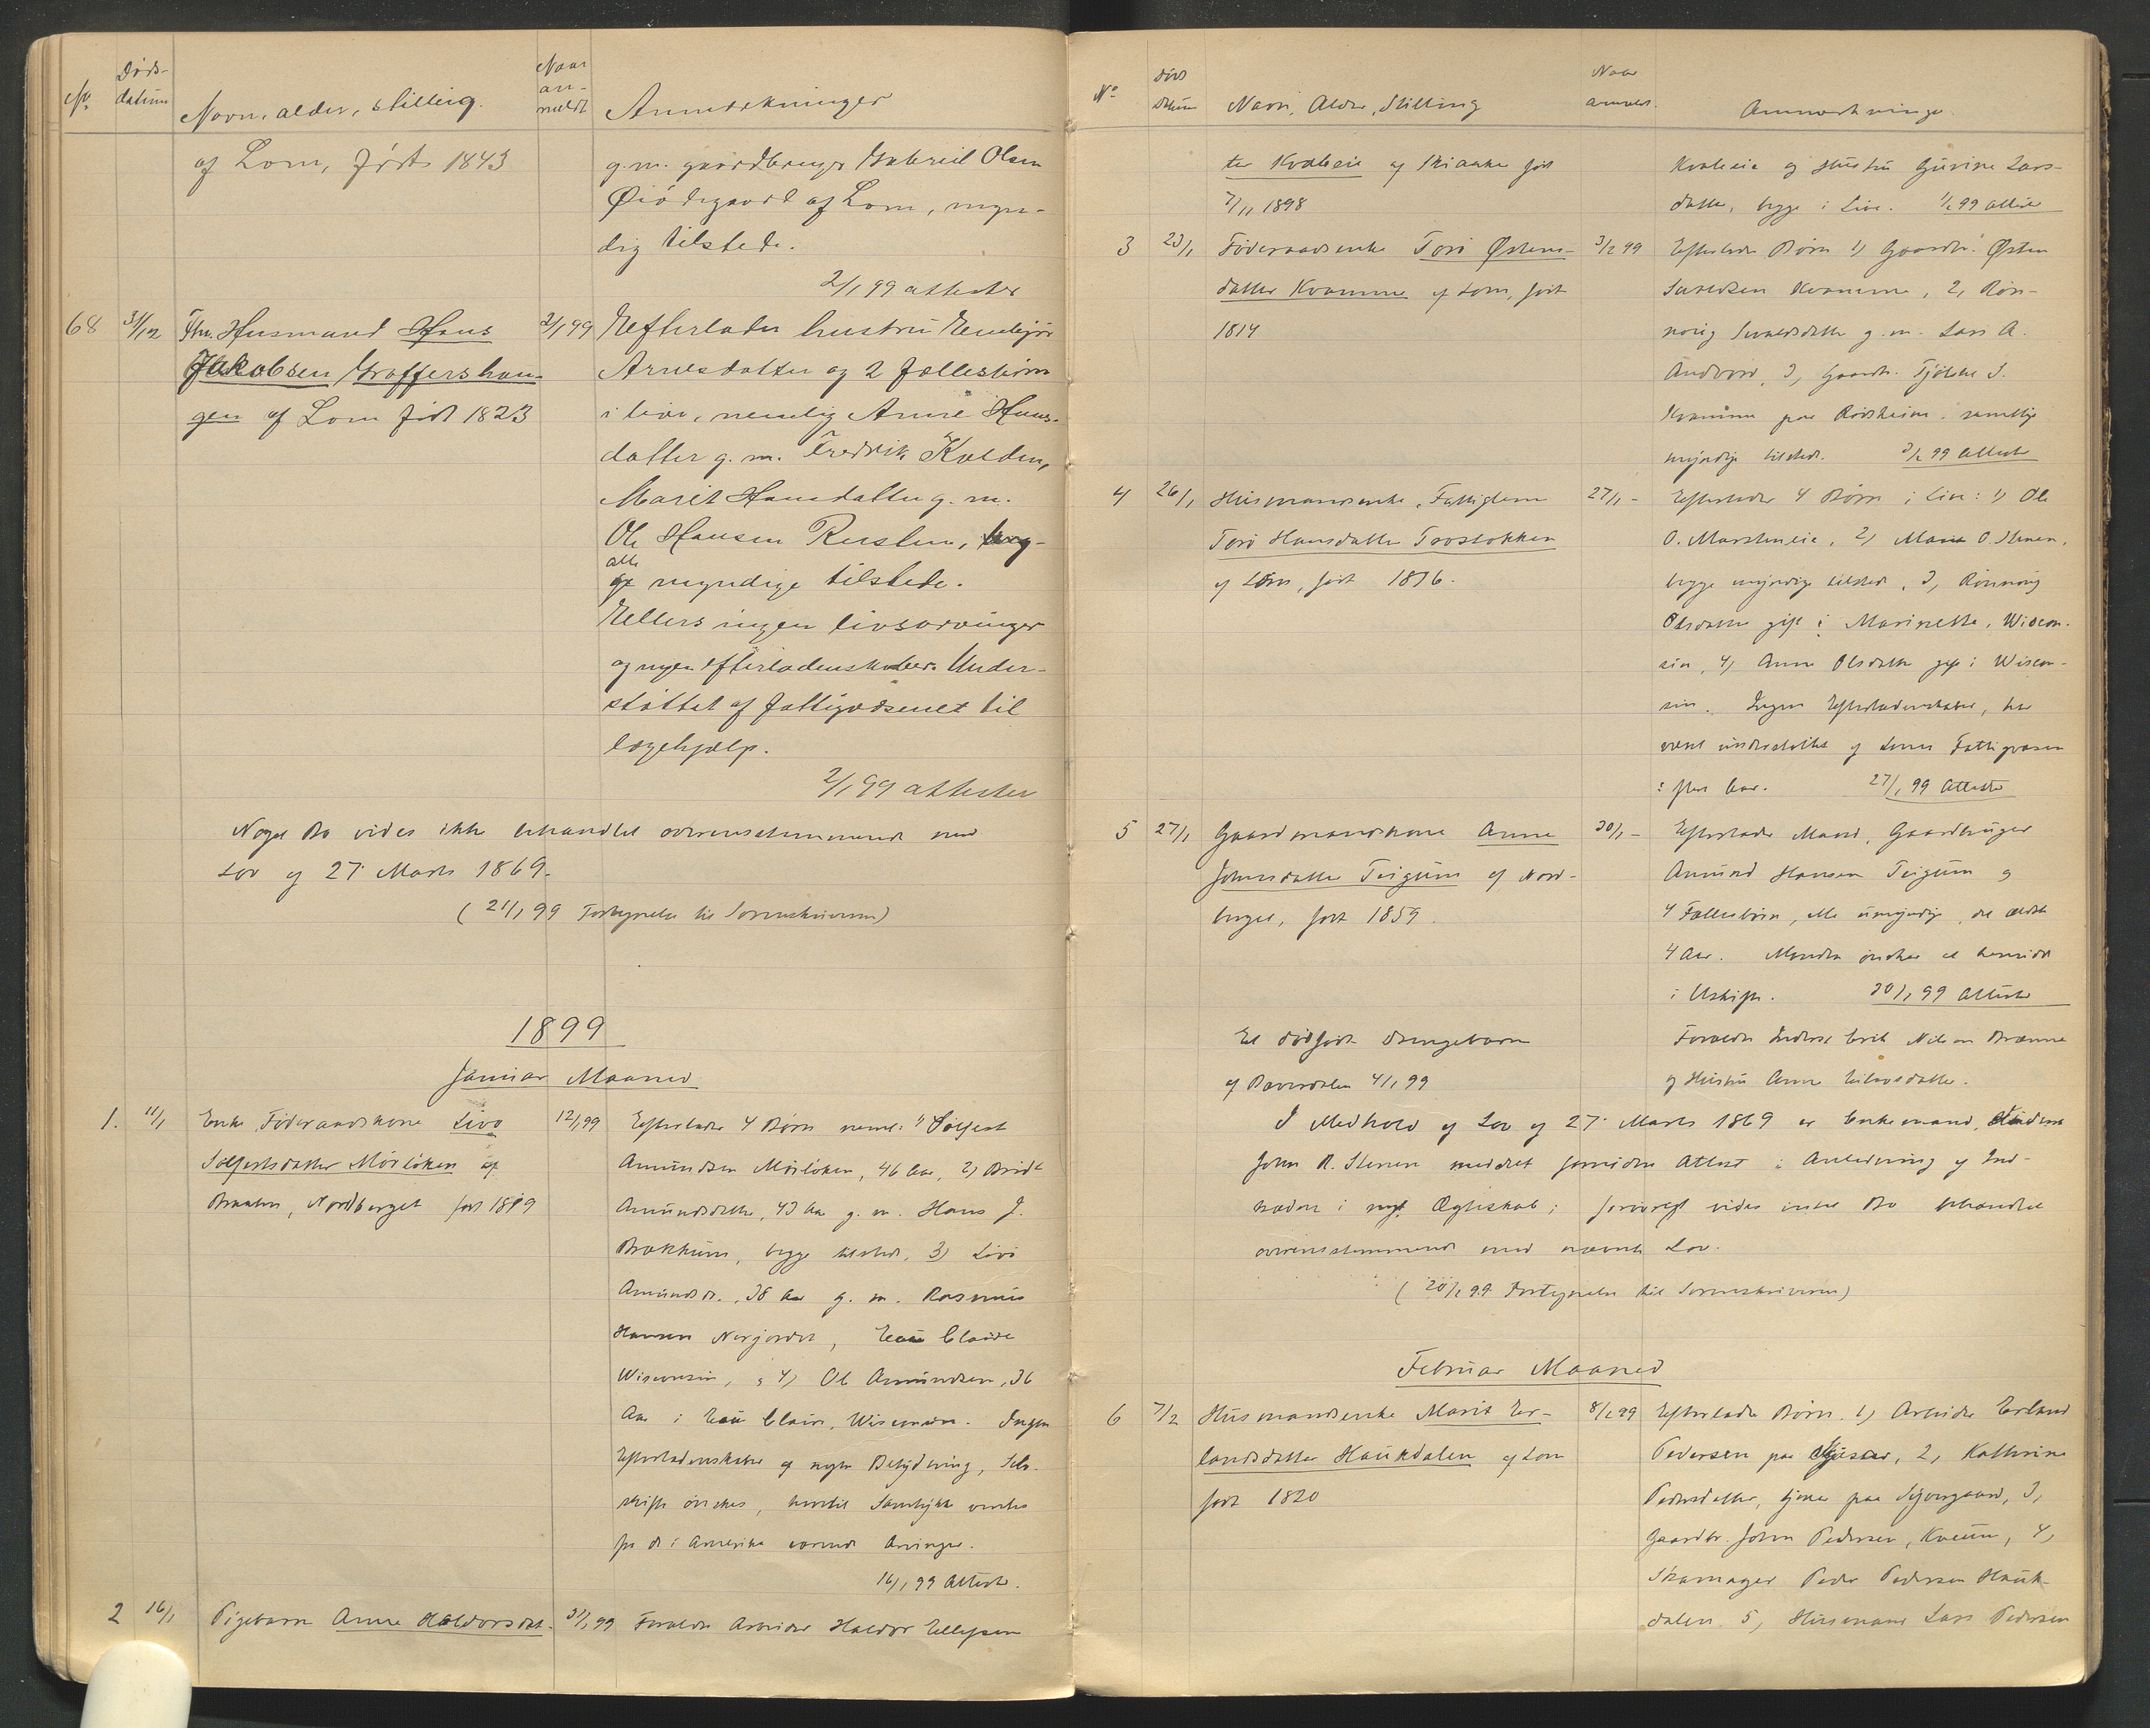 No.
Døds-
datum
Navn, alder, stilling.
Naar
an-
meldt
Anmerkninger
af Lom, født 1843
g. m. gaardbruger Gabriel Olsen
Øiødegaard af Lom, myn-
dig tilstede.
2/1 99 attester
68
31/12
Fhv. Husmand Hans
Jakobsen Graffershau-
gen af Lom født 1823
2/1 99
Efterlader hustru Embjør
Arnesdatter og 2 fællesbørn
i live, nemlig Anne Hans-
datter g. m. Fredrik Kolden,
Marit Hansdatter g. m.
Ole Hansen Rusten,
alle
myndige tilstede.
Ellers ingen livsarvinger
og ingen efterladenskaber. Under-
støttet af fattigvæsenet til
lægehjælp.
2/1 99 attester
Noget Bo vides ikke behandlet overensstemmende med
Lov af 27. Marts 1869.
(21/1 99 Fortegnelse til Sorenskriveren)
1899
Januar Maaned
1.
11/1
Enke Føderaadskone Livo
Solfestsdatter Mørløken af
Braaten, Nordberget født 1819
12/1 99
Efterlader 4 Børn neml: 1) Solfest
Amundsen Mørløken, 46 Aar, 2) Brid
Amundsdatter, 43 Aar g. m. Hans J.
Brækkum, begge tilstede, 3) Livo
Amundsd., 38 Aar g. m. Rasmus
Hansen Nerjordet, Eau Claire
Wisconsin, 4) Ole Amundsen, 36
Aar i Eau Claire, Wisconsin. Ingen
Efterladenskaber af nogen Betydning, Selv-
skifte ønskes, hvortil Samtykke ventes
fra de i Amerika værende Arvinger.
16/1 99 Attester.
2
16/1
Pigebarn Anne Haldorsdat-
31/1 99
Forældre Arbeider Haldor Ellefsen
No
Døds
Datum
Navn, Alder, Stilling
Naar
anmeldt.
Anmærkninger
ter Kvaleeie af Skiaaker født
7/11 1898
Kvaleeie og Hustru Guvine Lars-
datter, begge i Live. 1/2 99 Attester
3
23/1
Føderaadsenke Toro Østens-
datter Kvamme af Lom, født
1814
3/2 99
Efterlader Børn 1) Gaardbr. Østen
Syvertsen Kvamme, 2, Røn-
noug Syvertsdatter g. m. Lars A.
Andvord, 3, Gaardbr. Tjøstel S.
Kvamme paa Rødsheim, samtlige
myndige tilstede. 3/2 99 Attester
4
26/1
Husmandsenke, Fattiglem
Toro Hansdatter Trostokken
af Lom, født 1816.
27/1 -
Efterlader 4 Børn i Live: 1) Ole
O. Marsteneie, 2) Marit O. Stenen,
begge myndige tilstede, 3, Rønnoug
Olsdatter gift i Marinette, Wiscon-
sin, 4, Anne Olsdatter gift i Wiscon-
sin. Ingen Efterladenskaber, har
været understøttet af Loms Fattigvæsen
i flere Aar. 27/1 99 Attester
5
27/1
Gaardmandskone Anne
Johnsdatter Teigum af Nord-
berget, født 1859.
30/1 -
Efterlader Mand, Gaardbruger
Amund Hansen Teigum og
4 Fællesbørn, alle umyndige, det ældste
4 Aar. Manden ønsker at hensidde
i Uskifte. 30/1 99 Attester
Et dødfødt Drengebarn
af Bæverdalen 4/1 99
Forældre Inderst Erik Nilsen Brænne
og Hustru Anne Eilevsdatter.
I Medhold af Lov af 27. Marts 1869 er Enkemand,
John R. Stenen meddelt fornøden Attest i Anledning af Ind-
træden i nyt Ægteskab; forøvrigt vides intet Bo behandlet
overensstemmende med nævnte Lov.
(20/2 99 Fortegnelse til Sorenskriveren)
Februar Maaned
6
7/2
Husmandsenke Marit Er-
landsdatter Haukdalen af Lom
født 1820
8/2 99
Efterlader Børn. 1) Arbeider Erland
Pedersen paa, 2, Kathrine
Pedersdatter, tjener paa Sygaard, 3,
Gaardbr. John Pedersen, Kveum, 4,
Skomager Peder Pedersen Hauk-
dalen 5, Husmand Lars Pedersen